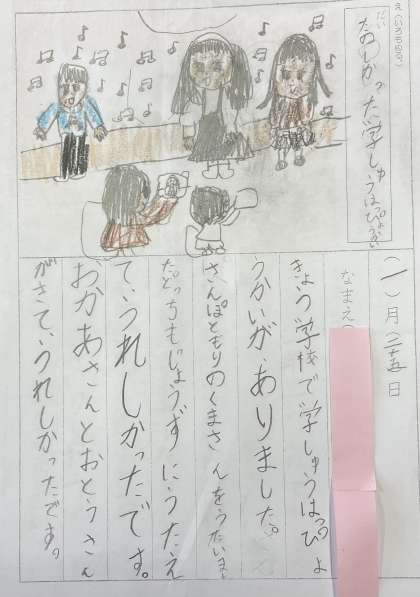 え(いろもぬろう)
だい
たのしかった学しゅうはっぴょうかい
(一)月(二十五)日
なまえ(
きょう学校で学しゅうはっぴょ
うかいが、ありました。
さんぽともりのくまさんをうたいまし
た。どっちもじょうずにうたえ
て、うれしかったです。
おかあさんとおとうさん
がきて、うれしかったです。